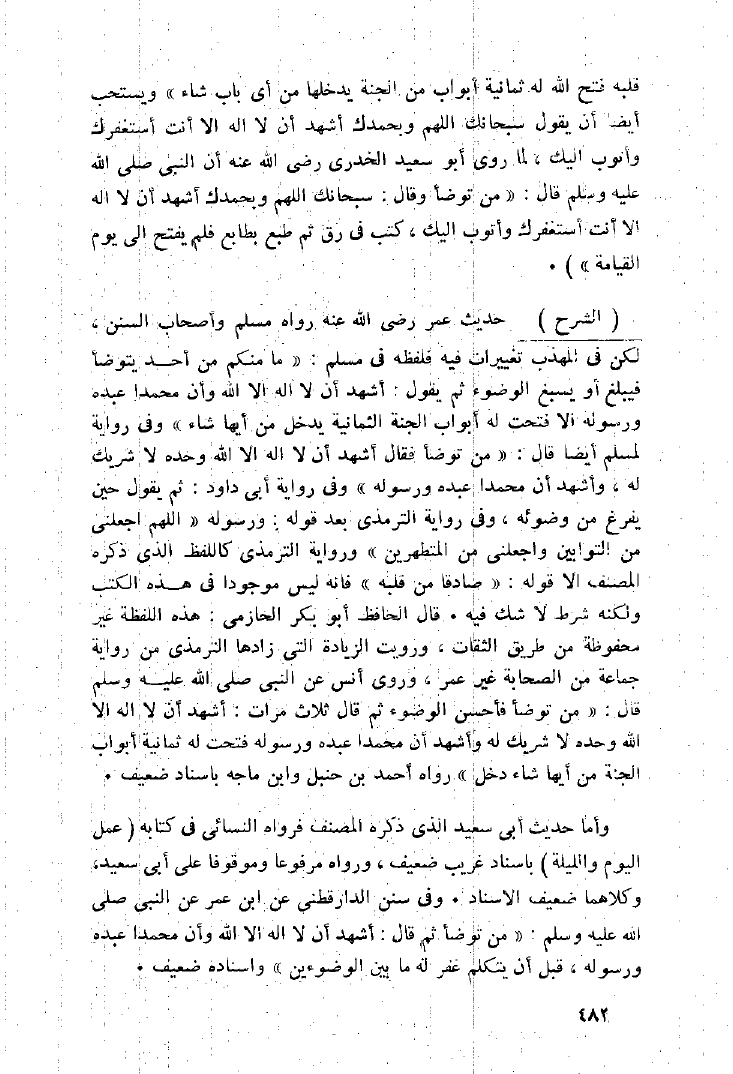 قلبه فتح الله له ثمانية أبواب من الجنة يدخلها من أى باب شاء » ويستحب
أيضا أن يقول سبحانك اللهم وبحمدك أشهد أن لا اله الا أنت أستغفرك
وأتوب اليك ، لما روى أبو سعيد الخدرى رضى الله عنه أن النبى صلى الله
عليه وسلم قال : « من توضأ وقال : سبحانك اللهم وبحمدك أشهد أن لا اله
الا أنت أستغفرك وأتوب اليك ، كتب فى رق ثم طبع بطابع فلم يفتح الى يوم
القيامة » ) ٠
( الشرح ) حديث عمر رضى الله عنه رواه مسلم وأصحاب السنن ،
لكن فى المهذب تغييرات فيه فلفظه فى مسلم : « ما منكم من أحـد يتوضأ
فيبلغ أو يسبغ الوضوء ثم يقول : أشهد أن لا اله الا الله وأن محمدا عبده
ورسوله الا فتحت له أبواب الجنة الثمانية يدخل من أيها شاء » وفى رواية
لمسلم أيضا قال : « من توضأ فقال أشهد أن لا اله الا الله وحده لا شريك
له ، وأشهد أن محمدا عبده ورسوله » وفى رواية أبى داود : ثم يقول حين
يفرغ من وضوئه ، وفى رواية الترمذى بعد قوله : ورسوله « اللهم اجعلنى
من التوابين واجعلنى من المتطهرين » ورواية الترمذى كاللفظ الذى ذكره
المصنف الا قوله : « صادقا من قلبه » فانه ليس موجودا فى هـذه الكتب
ولكنه شرط لا شك فيه ٠ قال الحافظ أبو بكر الحازمى : هذه اللفظة غير
محفوظة من طريق الثقات ، ورويت الزيادة التى زادها الترمذى من رواية
جماعة من الصحابة غير عمر ، وروى أنس عن النبى صلى الله عليـه وسلم
قال : « من توضأ فأحسن الوضوء ثم قال ثلاث مرات : أشهد أن لا اله الا
الله وحده لا شريك له وأشهد أن محمدا عبده ورسوله فتحت له ثمانية أبواب
الجنة من أيها شاء دخل » رواه أحمد بن حنبل وابن ماجه باسناد ضعيف ٠
وأما حديث أبى سعيد الذى ذكره المصنف فرواه النسائى فى كتابه ( عمل
اليوم والليلة ) باسناد غريب ضعيف ، ورواه مرفوعا وموقوفا على أبى سعيد،
وكلاهما ضعيف الاسناد ٠ وفى سنن الدارقطني عن ابن عمر عن النبي صلى
الله عليه وسلم : « من توضأ ثم قال : أشهد أن لا اله الا الله وأن محمدا عبده
ورسوله ، قبل أن يتكلم غفر له ما بين الوضوءين » واسناده ضعيف ٠
٤٨٢